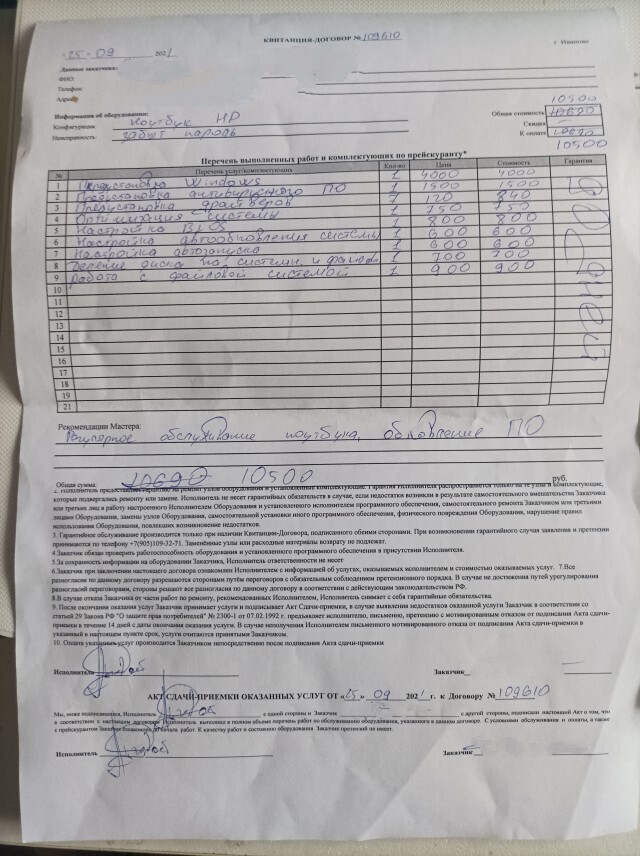 КВИТАНЦИЯ-ДОГОВОР № 109610
«25» 09 2021
г. Ульяновск
Данные заказчика:
ФИО:
Телефон:
Адрес:
Информация об оборудовании:
Конфигурация: Ноутбук HP
Неисправность: забыт пароль
10500
Общая стоимость 10690
Скидка
К оплате 10690
10500
Перечень выполненных работ и комплектующих по прейскуранту*
№ Перечень услуг/комплектующих Кол-во Цена Стоимость Гарантия
1 Переустановка Windows 1 4000 4000
2 антивирусного ПО 1 1500 1500
3 драйверов 7 120 840
4 Оптимизация системы 1 750 750
5 Настройка BIOS 1 800 800
6 Настройка автообновления системы 1 600 600
7 Настройка автозапуска 1 600 600
8 Деление диска на системн. и файлов. 1 700 700
9 Работа с файловой системой 1 900 900
дней
10
11
12
13
14
15
16
17
18
19
20
21
Рекомендации Мастера:
обслуживание ноутбука, обновление ПО
Общая сумма: 10690 10500 руб.
2. Исполнитель предоставляет гарантию на ремонт узлов оборудования и установленные комплектующие. Гарантия Исполнителя распространяется только на те узлы и комплектующие,
которые подвергались ремонту или замене. Исполнитель не несет гарантийных обязательств в случае, если недостатки возникли в результате самостоятельного вмешательства Заказчика
или третьих лиц в работу настроенного Исполнителем Оборудования и установленного исполнителем программного обеспечения, самостоятельного ремонта Заказчиком или третьими
лицами Оборудования, замены узлов Оборудования, самостоятельной установки иного программного обеспечения, физического повреждения Оборудования, нарушение правил
использования Оборудования, повлекших возникновение недостатков.
3. Гарантийное обслуживание производится только при наличии Квитанции-Договора, подписанного обеими сторонами. При возникновении гарантийного случая заявления и претензии
принимаются по телефону +7(905)109-32-71. Заменённые узлы или расходные материалы возврату не подлежат.
4.Заказчик обязан проверить работоспособность оборудования и установленного программного обеспечения в присутствии Исполнителя.
5.За сохранность информации на оборудовании Заказчика, Исполнитель ответственности не несет
6.Заказчик при заключении настоящего договора ознакомлен Исполнителем с информацией об услугах, оказываемых исполнителем и стоимостью оказываемых услуг. 7.Все
разногласия по данному договору разрешаются сторонами путём переговоров с обязательным соблюдением претензионного порядка. В случае не достижения путей урегулирования
разногласий переговорами, стороны решают все разногласия по данному договору в соответствии с действующим законодательством РФ.
8.В случае отказа Заказчика от части работ по ремонту, рекомендованных Исполнителем, Исполнитель снимает с себя гарантийные обязательства.
9. После окончания оказания услуг Заказчик принимает услуги и подписывает Акт Сдачи-приемки, в случае выявления недостатков оказанной услуги Заказчик в соответствии со
статьей 29 Закона РФ "О защите прав потребителей" № 2300-1 от 07.02.1992 г. предъявляет исполнителю, письменно, претензию с мотивированным отказом от подписания Акта сдачи-
приемки в течение 14 дней с даты окончания оказания услуги. В случае неполучения Исполнителем письменного мотивированного отказа от подписания Акта сдачи-приемки в
указанный в настоящем пункте срок, услуги считаются принятыми Заказчиком.
10. Оплата указанных услуг производится Заказчиком непосредственно после подписания Акта сдачи-приемки
Исполнитель Заказчик
АКТ СДАЧИ-ПРИЕМКИ ОКАЗАННЫХ УСЛУГ ОТ «25» 09 2021 г. к Договору № 109610
Мы, ниже подписавшиеся, Исполнитель с одной стороны и Заказчик с другой стороны, подписали настоящий Акт о том, что
в соответствии с настоящим договором Исполнитель выполнил в полном объеме перечень работ по обслуживанию оборудования, указанного в данном договоре. С условиями обслуживания и оплаты, а также
с прейскурантом Заказчик ознакомлен до начала работ. К качеству работ и состоянию оборудования Заказчик претензий не имеет.
Исполнитель Заказчик